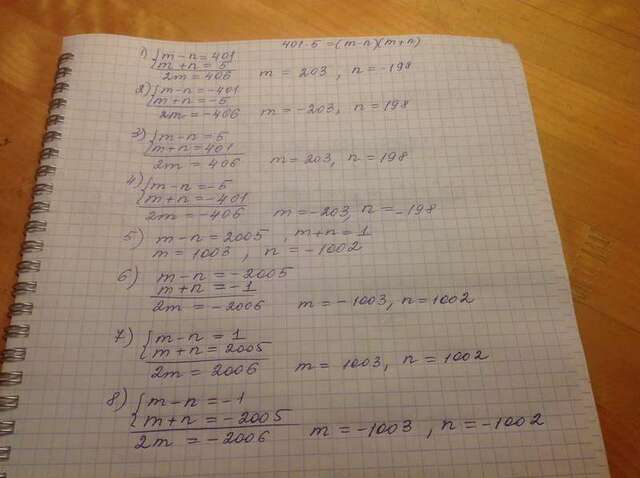 401·5 = (m-n)(m+n)
1) {m-n=401
m+n=5
2m=406 m = 203, n=-198
2) {m-n=-401
m+n=-5
2m=-406 m=-203, n=198
3) {m-n=5
m+n=401
2m=406 m=203, n=198
4) {m-n=-5
m+n=-401
2m=-406 m=-203, n=-198
5) m-n=2005, m+n=1
m=1003, n=-1002
6) m-n=-2005
m+n=-1
2m=-2006 m=-1003, n=1002
7) {m-n=1
m+n=2005
2m=2006 m=1003, n=1002
8) {m-n=-1
m+n=-2005
2m=-2006 m=-1003, n=-1002